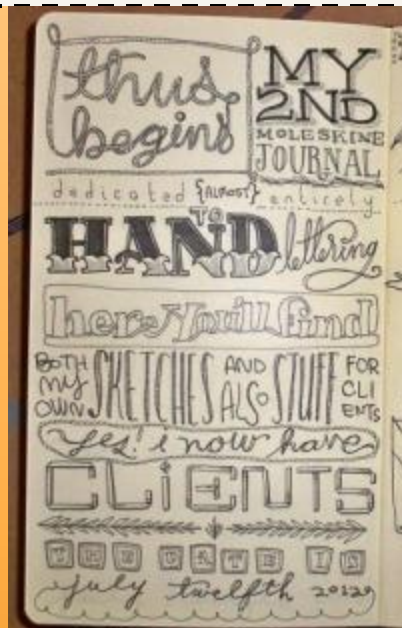 thus begins
MY 2ND
MOLESKINE
JOURNAL
dedicated {ALMOST} entirely
TO
HAND lettering
here You'll find
BOTH MY OWN SKETCHES AND ALSO STUFF FOR CLIENTS
Yes! i now have
CLiENTS
THE DATE IS
july twelfth 2012